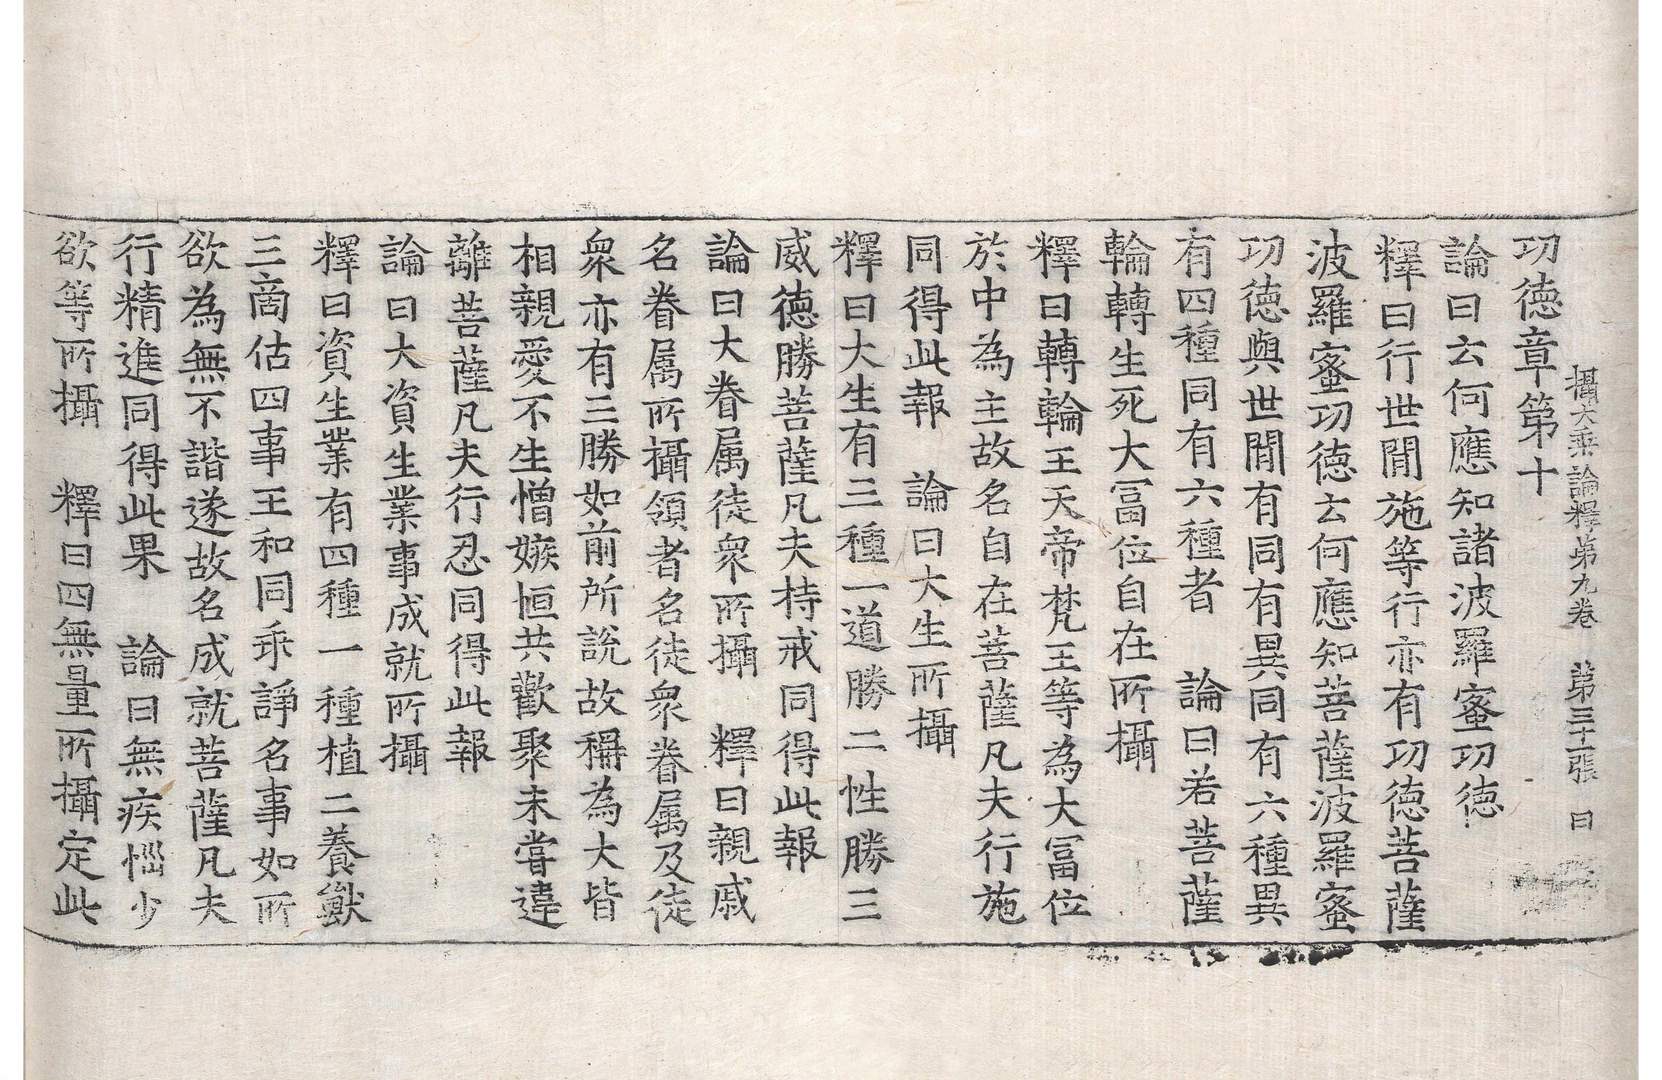 攝大乘論釋第九卷 第三十一張 曰
功德章第十
論曰云何應知諸波羅蜜功德
釋曰行世間施等行亦有功德菩薩
波羅蜜功德云何應知菩薩波羅蜜
功德與世間有同有異同有六種異
有四種同有六種者 論曰若菩薩
輪轉生死大冨位自在所攝
釋曰轉輪王天帝梵王等為大冨位
於中為主故名自在菩薩凡夫行施
同得此報 論曰大生所攝
釋曰大生有三種一道勝二性勝三
威德勝菩薩凡夫持戒同得此報
論曰大眷属徒衆所攝 釋曰親戚
名眷属所攝領者名徒衆眷属及徒
衆亦有三勝如前所説故稱為大皆
相親愛不生憎嫉恒共歡聚未甞違
離菩薩凡夫行忍同得此報
論曰大資生業事成就所攝
釋曰資生業有四種一種植二養獸
三啇估四事王和同乖諍名事如所
欲為無不諧遂故名成就菩薩凡夫
行精進同得此果 論曰無疾惱少
欲等所攝 釋曰四無量所攝定此